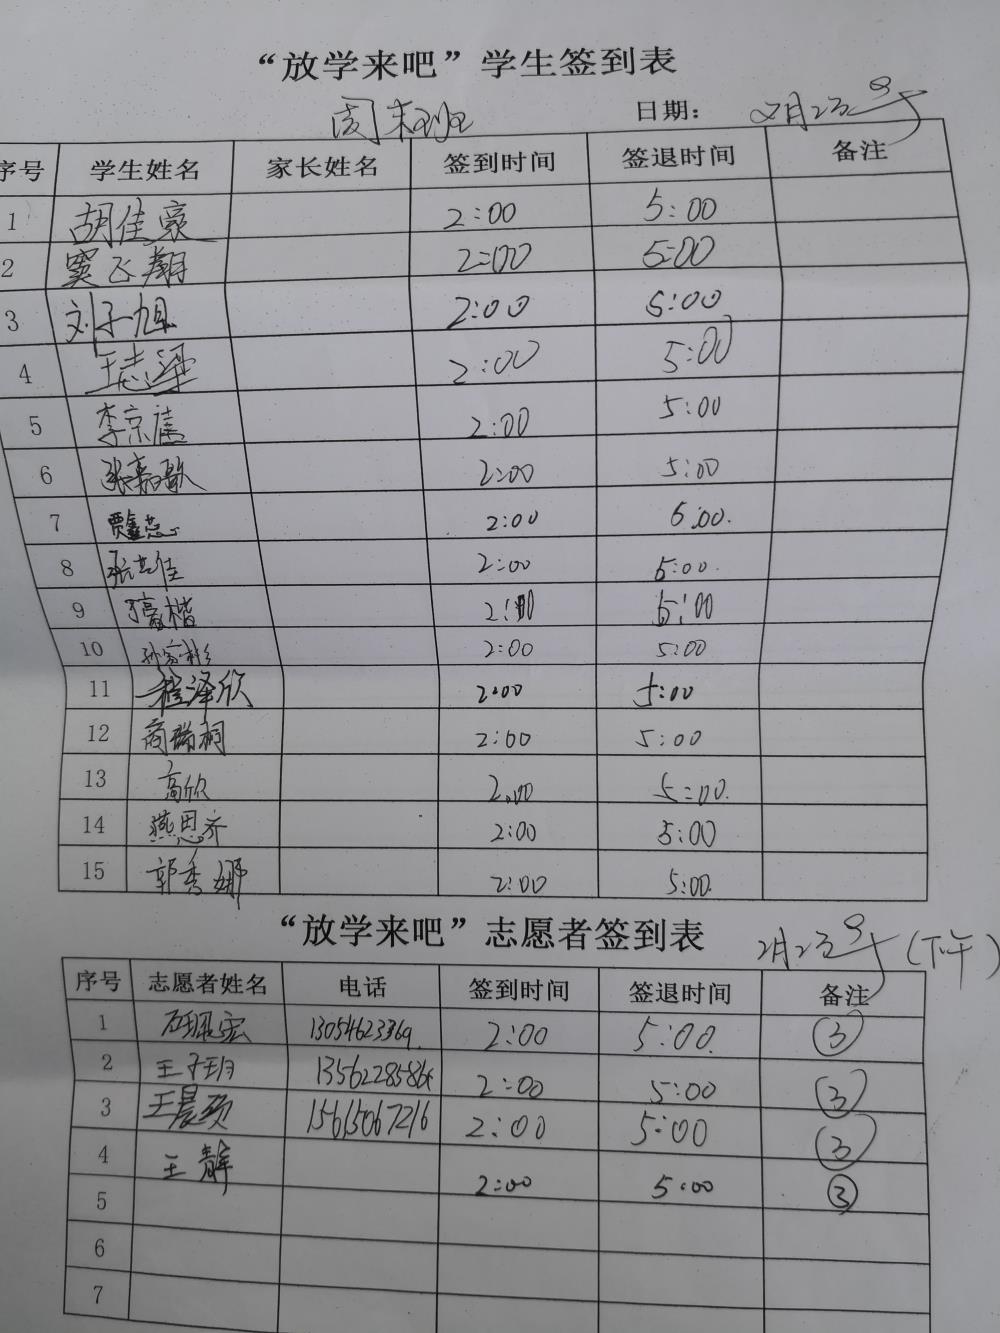 “放学来吧”学生签到表
周末班 日期：2月23号
序号 学生姓名 家长姓名 签到时间 签退时间 备注
1 胡佳豪 2:00 5:00
2 窦飞翔 2:00 5:00
3 刘子旭 2:00 5:00
4 王志泽 2:00 5:00
5 李京禧 2:00 5:00
6 张嘉歌 2:00 5:00
7 贾鑫蕊 2:00 5:00.
8 张艺佳 2:00 5:00.
9 楷 2:00 5:00
10 孙家彬 2:00 5:00
11 程泽欣 2:00 5:00
12 商瑞桐 2:00 5:00
13 高欣 2:00 5:00.
14 燕思齐 2:00 5:00
15 郭秀娜 2:00 5:00.
“放学来吧”志愿者签到表 2月23号(下午)
序号 志愿者姓名 电话 签到时间 签退时间 备注
1 13054623369. 2:00 5:00. ③
2 王子玥 2:00 5:00 ③
3 王晨 15615067216 2:00 5:00 ③
4 王静 2:00 5:00 ③
5
6
7